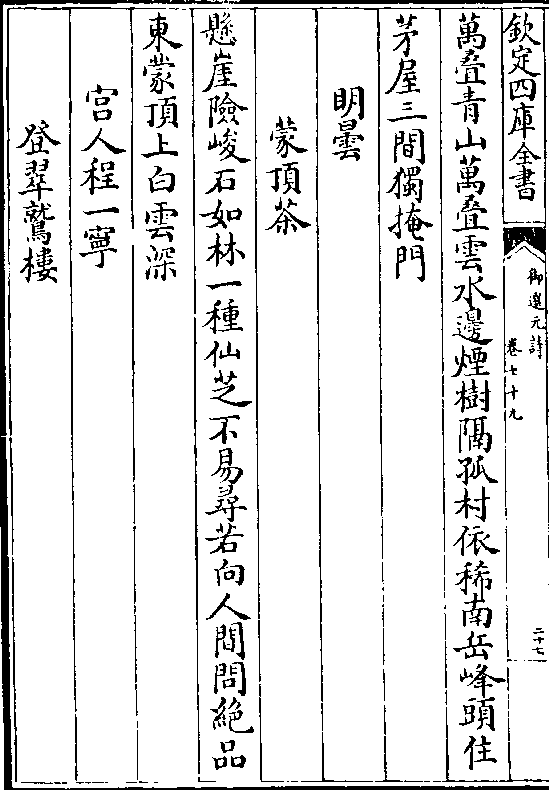 欽定四庫全書
御選元詩
卷七十九
二十七
萬疊青山萬疊雲水邊煙樹隔孤村依稀南岳峰頭住
茅屋三間獨掩門
明曇
蒙頂茶
懸崖險峻石如林一種仙芝不易尋若向人間問絕品
東蒙頂上白雲深
宫人程一寧
登翠鷲樓